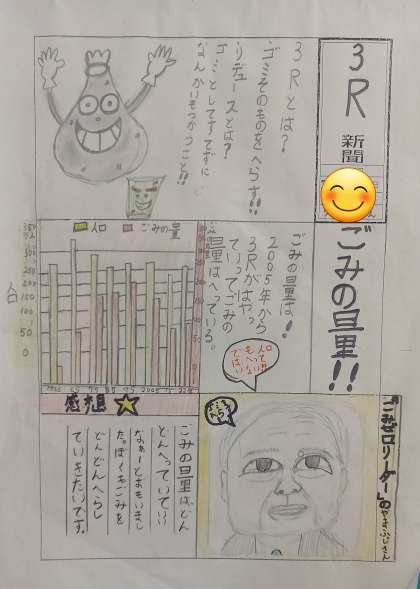 3R
新聞
3Rとは？
ゴミそのものをへらす!!
リデュースとは？
ゴミとしてすてずに
なんかいもつかうこと!!
ごみの量!!
ごみの量は！
2005年から
3Rがはやっ
ていってごみの
量はへっている。
人口
ごみの量
350
300
250
200
150
100
50
0
感想
ごみの量はどん
どんへっていてい
なぁーとおもいまし
た。ぼくもごみを
どんどんへらし
ていきたいです。
「ごみゼロリーダー」の
やまふじさん